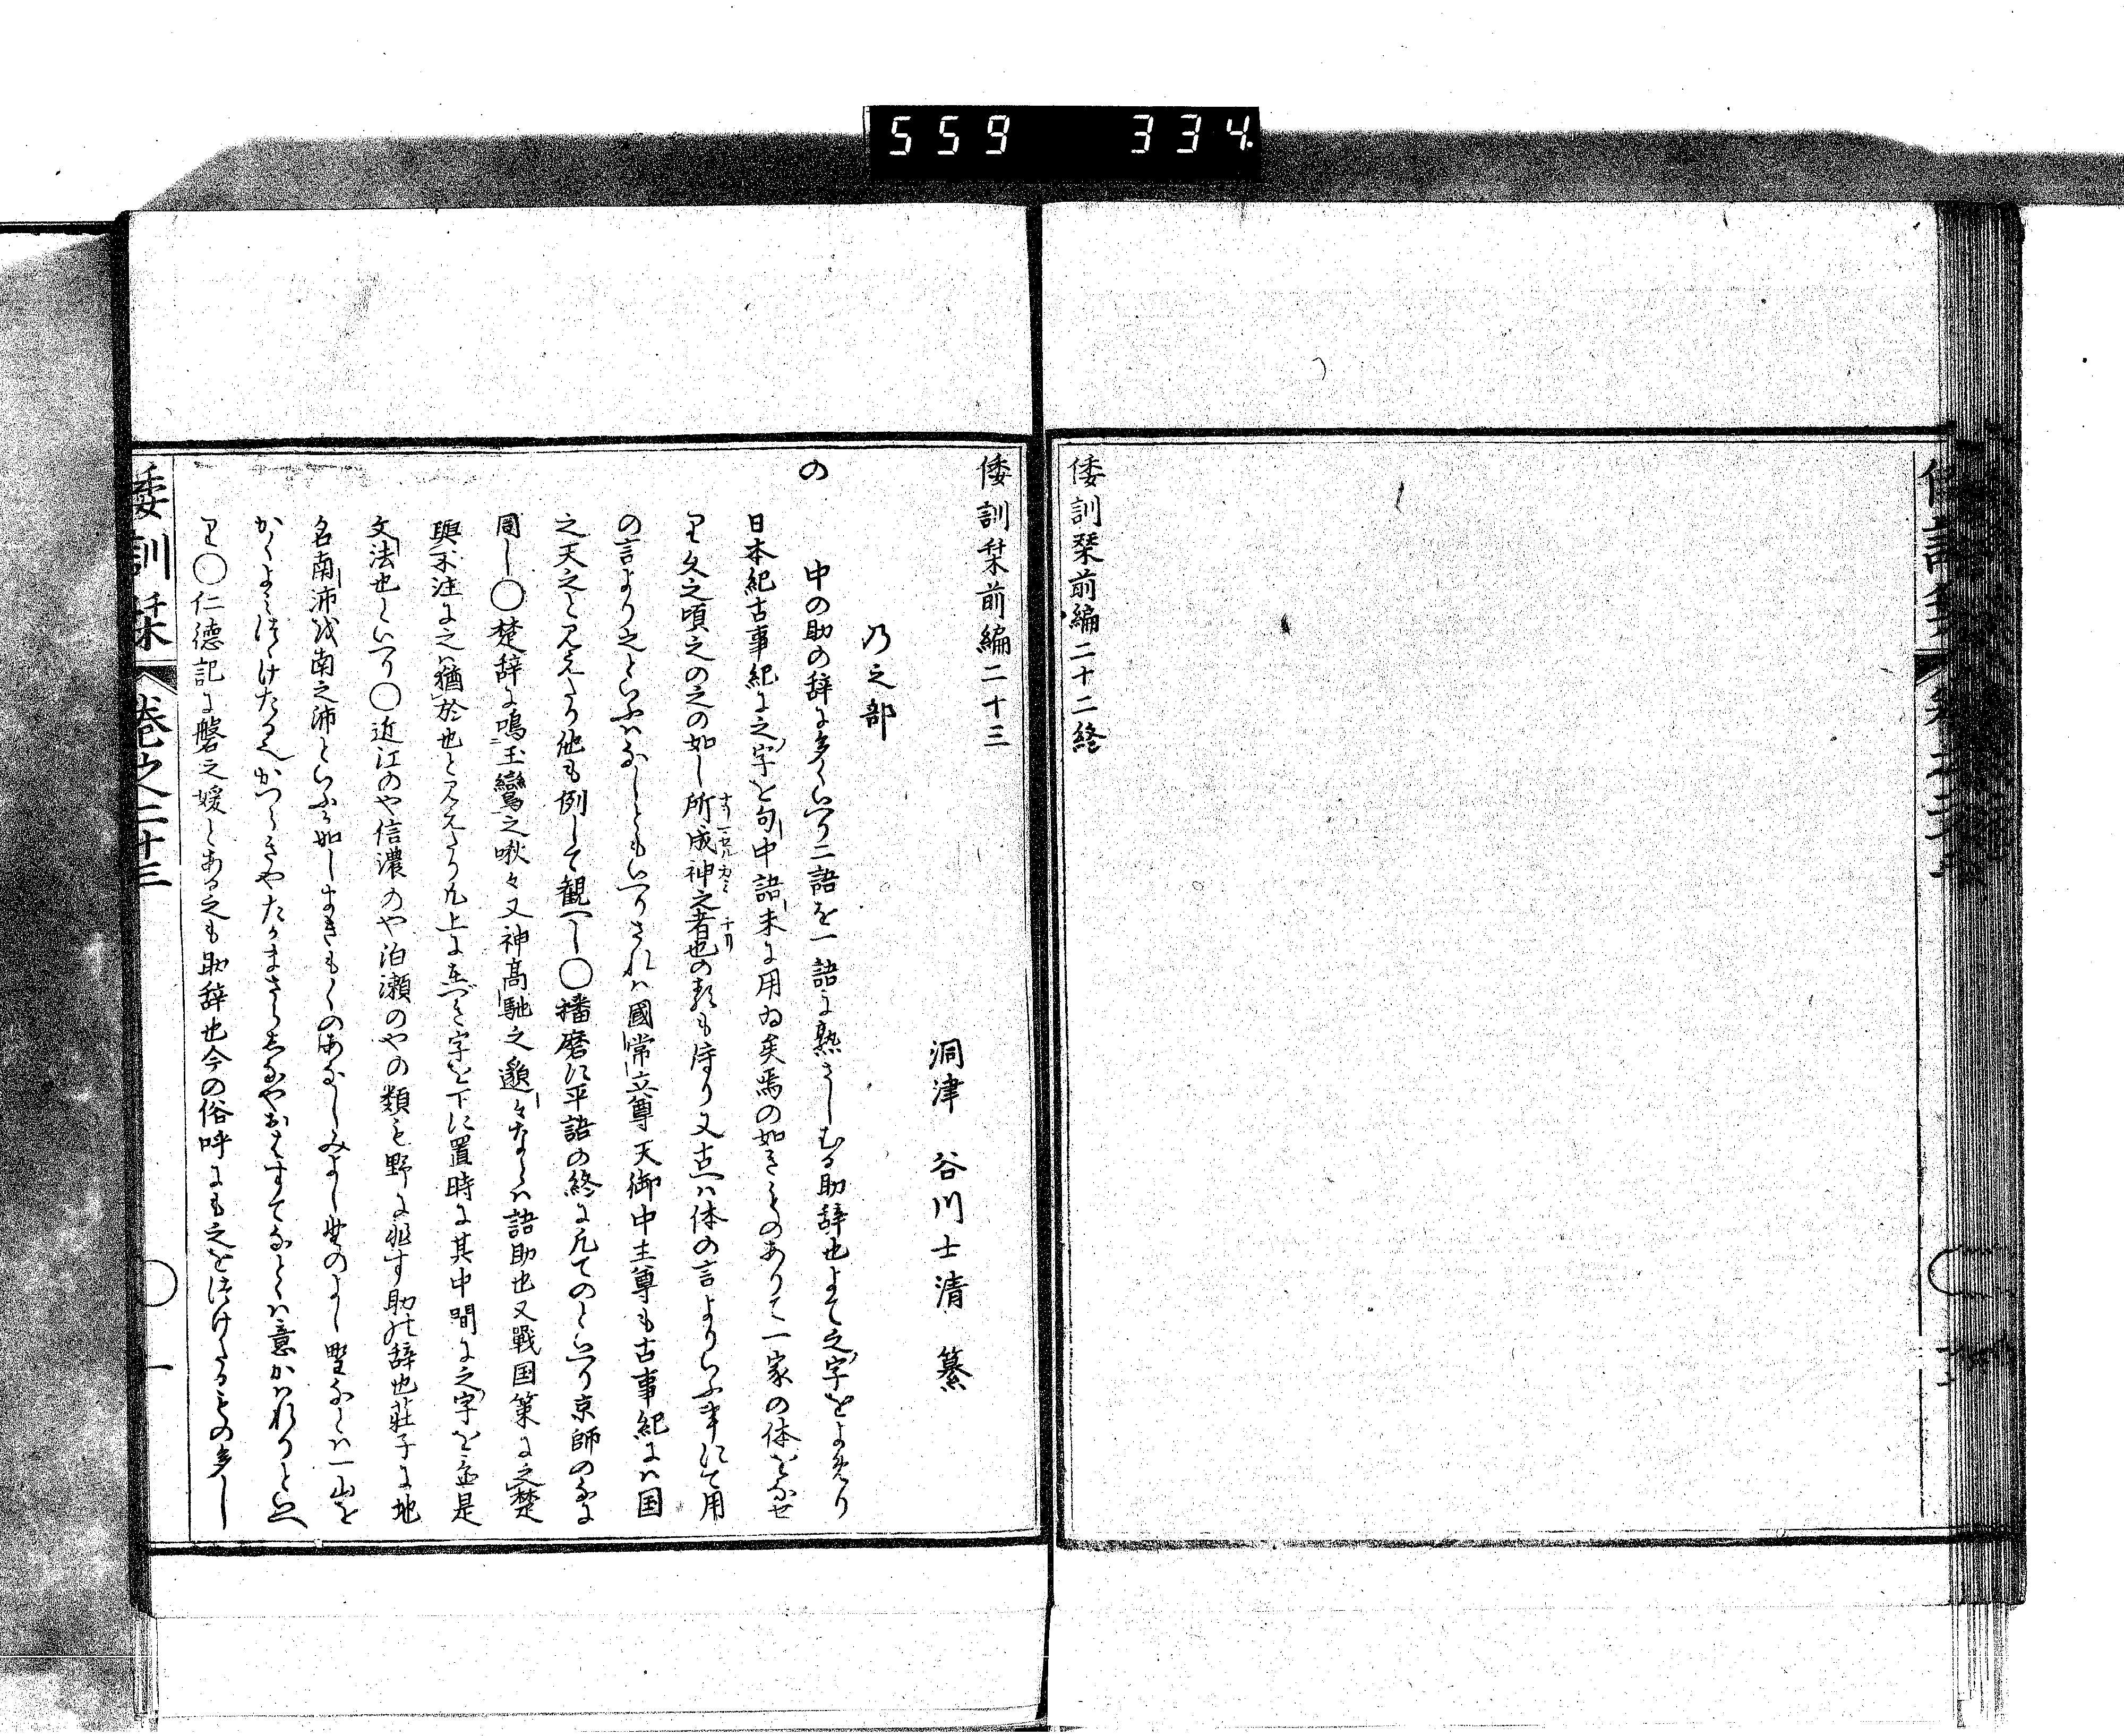 559 334
倭訓栞前編二十二終
倭訓栞前編二十三
洞津 谷川士清 纂
乃之部
の 中の助の辞に多くいへり二語を一語に熟さしむる助辞也よて之字をよめり
日本紀古事紀に之字を句中語末に用ゐ矣焉の如きものありて一家の体をなせ
り久之頃之の之の如し所成神之者也の類も侍り又古へは体の言よりいふ事にて用
の言より之といふはなしともいへりされは國常立尊天御中主尊も古事紀には国
之天之と見えたり他も例して観へし〇播磨に平語の終に凡てのといへり京師のなに
同し〇楚辞に鳴玉鸞之啾々又神高馳之邈々なとは語助也又戰国策に之楚
與不注に之猶於也と見えたり凡上に在へき字を下に置時に其中間に之字を並是
文法也といへり〇近江のや信濃のや泊瀬のやの類も野に非す助の辞也莊子に地
名南沛或南之沛といふか如しまきもくのあなしみよし野のよし野なとは一山を
かくよみつゝけたるへしかつらきやたかまさらしなやおはすてなとは意かはれりといへ
り〇仁徳記に磐之媛とある之も助辞也今の俗呼にも之をつけたるもの多し
倭訓栞 巻之二十三 〇 一